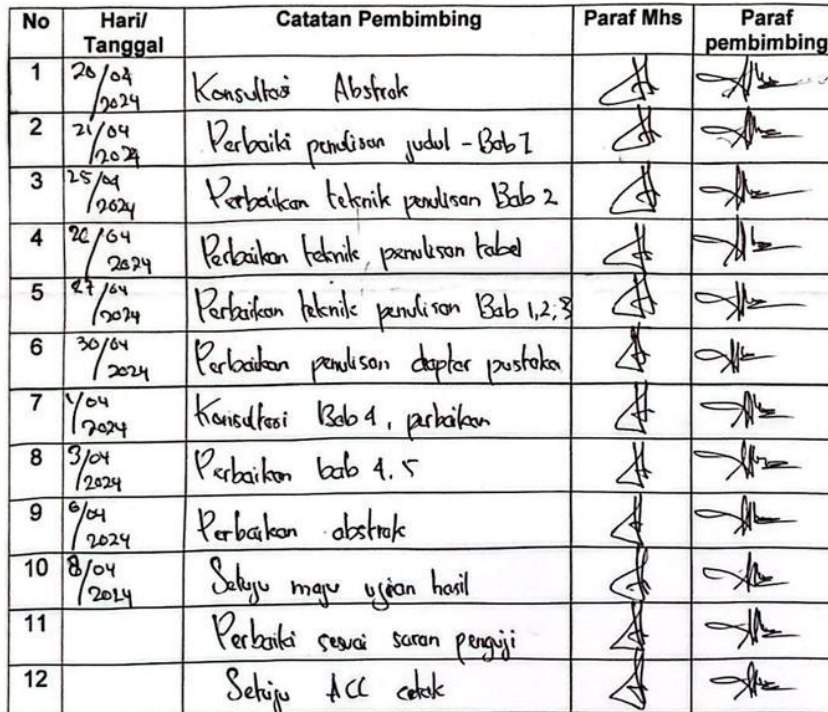 No Hari/ Tanggal Catatan Pembimbing Paraf Mhs Paraf pembimbing
1 20/04 2024 Konsultasi Abstrak
2 21/04 2024 Perbaiki penulisan judul - Bab 1
3 25/04 2024 Perbaikan teknik penulisan Bab 2
4 26/04 2024 Perbaikan teknik penulisan tabel
5 27/04 2024 Perbaikan teknik penulisan Bab 1,2,3
6 30/04 2024 Perbaikan penulisan daptar pustaka
7 1/04 2024 Konsultasi Bab 4, perbaikan
8 3/04 2024 Perbaikan bab 4.5
9 6/04 2024 Perbaikan abstrak
10 8/04 2024 Setuju maju ujian hasil
11 Perbaiki sesuai saran penguji
12 Setuju ACC cetak